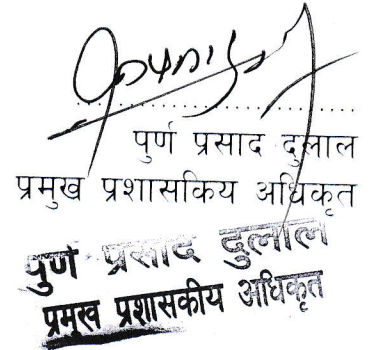 पुर्ण प्रसाद दुलाल
प्रमुख प्रशासकिय अधिकृत
पुर्ण प्रसाद दुलाल
प्रमुख प्रशासकीय अधिकृत